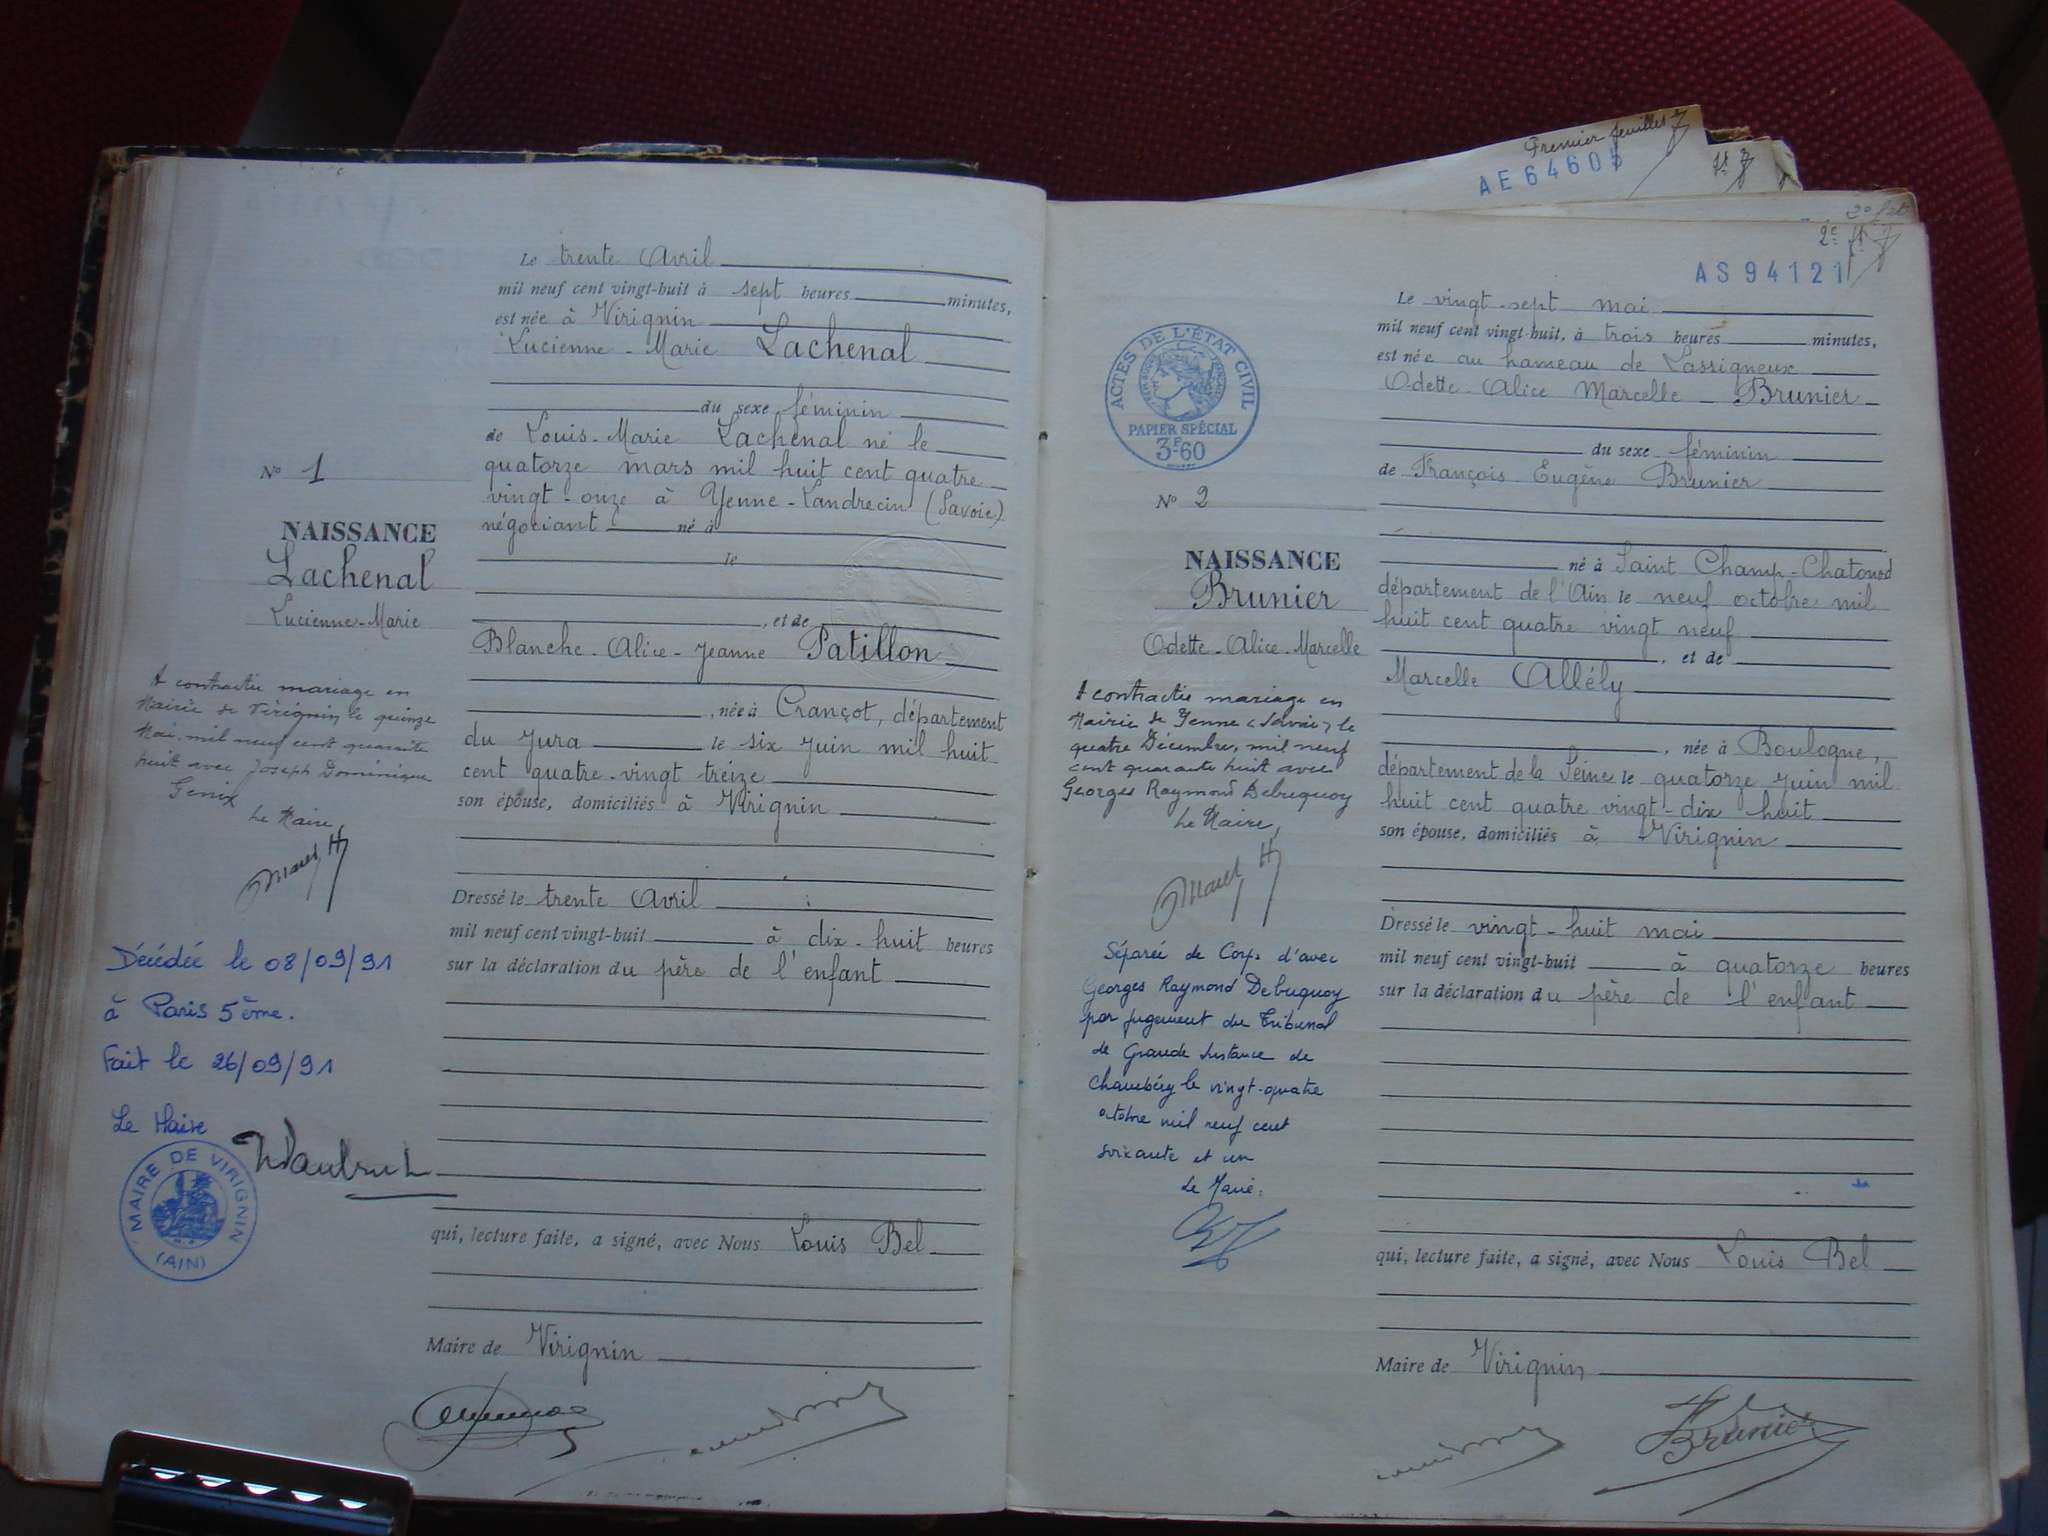 Premier feuillet
AE 6460
AS 94121
Le trente Avril
mil neuf cent vingt-huit à sept heures minutes,
est née à Virignin
Lucienne-Marie Lachenal
du sexe féminin
de Louis-Marie Lachenal né le
quatorze mars mil huit cent quatre
vingt-onze à Yenne-Landrecin (Savoie)
négociant né à
le
, et de
Blanche-Alice-Jeanne Patillon
, née à Crançot, département
du Jura le six juin mil huit
cent quatre-vingt treize
son épouse, domiciliés à Virignin
Dressé le trente Avril
mil neuf cent vingt-huit à dix-huit heures
sur la déclaration du père de l'enfant
qui, lecture faite, a signé, avec Nous Louis Bel
Maire de Virignin
No 1
NAISSANCE
Lachenal
Lucienne-Marie
A contractée mariage en
Mairie de Virignin le quinze
Mai, mil neuf cent quarante
huit avec Joseph Dominique
Genix
Le Maire,
Décédée le 08/09/91
à Paris 5ème.
Fait le 26/09/91
Le Maire
MAIRE DE VIRIGNIN
(AIN)
Le vingt-sept mai
mil neuf cent vingt-huit, à trois heures minutes,
est née au hameau de Lassigneux
Odette-Alice Marcelle Brunier
du sexe féminin
de François Eugène Brunier
né à Saint Champ-Chatonod
département de l'Ain le neuf octobre mil
huit cent quatre vingt neuf
, et de
Marcelle Allély
, née à Boulogne,
département de la Seine le quatorze juin mil
huit cent quatre vingt-dix huit
son épouse, domiciliés à Virignin
Dressé le vingt-huit mai
mil neuf cent vingt-huit à quatorze heures
sur la déclaration du père de l'enfant
qui, lecture faite, a signé, avec Nous Louis Bel
Maire de Virignin
Brunier
ACTES DE L'ÉTAT CIVIL
PAPIER SPÉCIAL
3F60
No 2
NAISSANCE
Brunier
Odette-Alice-Marcelle
A contractée mariage en
Mairie de Yenne (Savoie) le
quatre Décembre, mil neuf
cent quarante huit avec
Georges Raymond Debuquoy
Le Maire,
Séparée de Corps d'avec
Georges Raymond Debuquoy
par jugement du Tribunal
de Grande Instance de
Chambéry le vingt-quatre
octobre mil neuf cent
soixante et un
Le Maire: